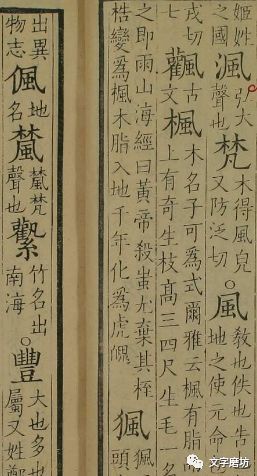 姬姓
之國
渢
弘大
聲也
梵
木得風皃
又防泛切
○風
教也佚也告
地之使元命
戎切
七
飌
古
文
楓
木名子可爲式爾雅云楓有脂
上有奇生枝高三四尺生毛一名
之即雨山海經曰黃帝殺蚩尤棄其桎
梏變爲楓木脂入地千年化爲虎魄
猦
猦
頭
出異
物志
偑
地
名
檒
檒梵
聲也
竹名出
南海
○豐
大也多也
屬又姓鄭
文字磨坊